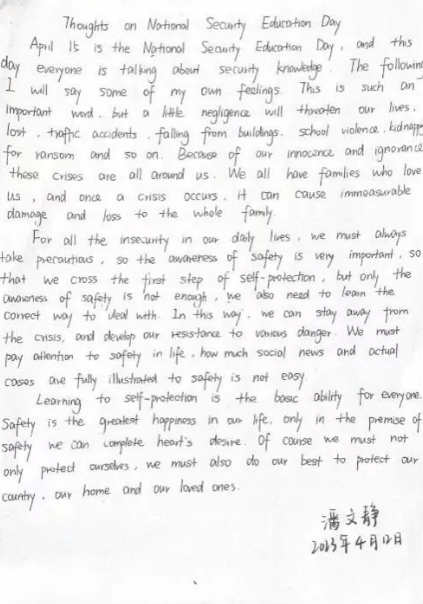 Thoughts on National Security Education Day
April 15 is the National Security Education Day, and this
day everyone is talking about security knowledge. The following
I will say some of my own feelings. This is such an
important word, but a little negligence will threaten our lives,
lost, traffic accidents, falling from buildings, school violence, kidnapp
for ransom and so on. Because of our innocence and ignorance
these crises are all around us. We all have families who love
us, and once a crisis occurs, it can cause immeasurable
damage and loss to the whole family.
For all the insecurity in our daily lives, we must always
take precautious, so the awareness of safety is very important, so
that we cross the first step of self-protection, but only the
awareness of safety is not enough, we also need to learn the
correct way to deal with. In this way, we can stay away from
the crisis, and develop our resistance to various danger. We must
pay attention to safety in life, how much social news and actual
cases are fully illustrated to safety is not easy.
Learning to self-protection is the basic ability for everyone.
Safety is the greatest happiness in our life, only in the premise of
safety we can complete heart's desire. Of course we must not
only protect ourselves, we must also do our best to protect our
country, our home and our loved ones.
潘文静
2023年4月12日